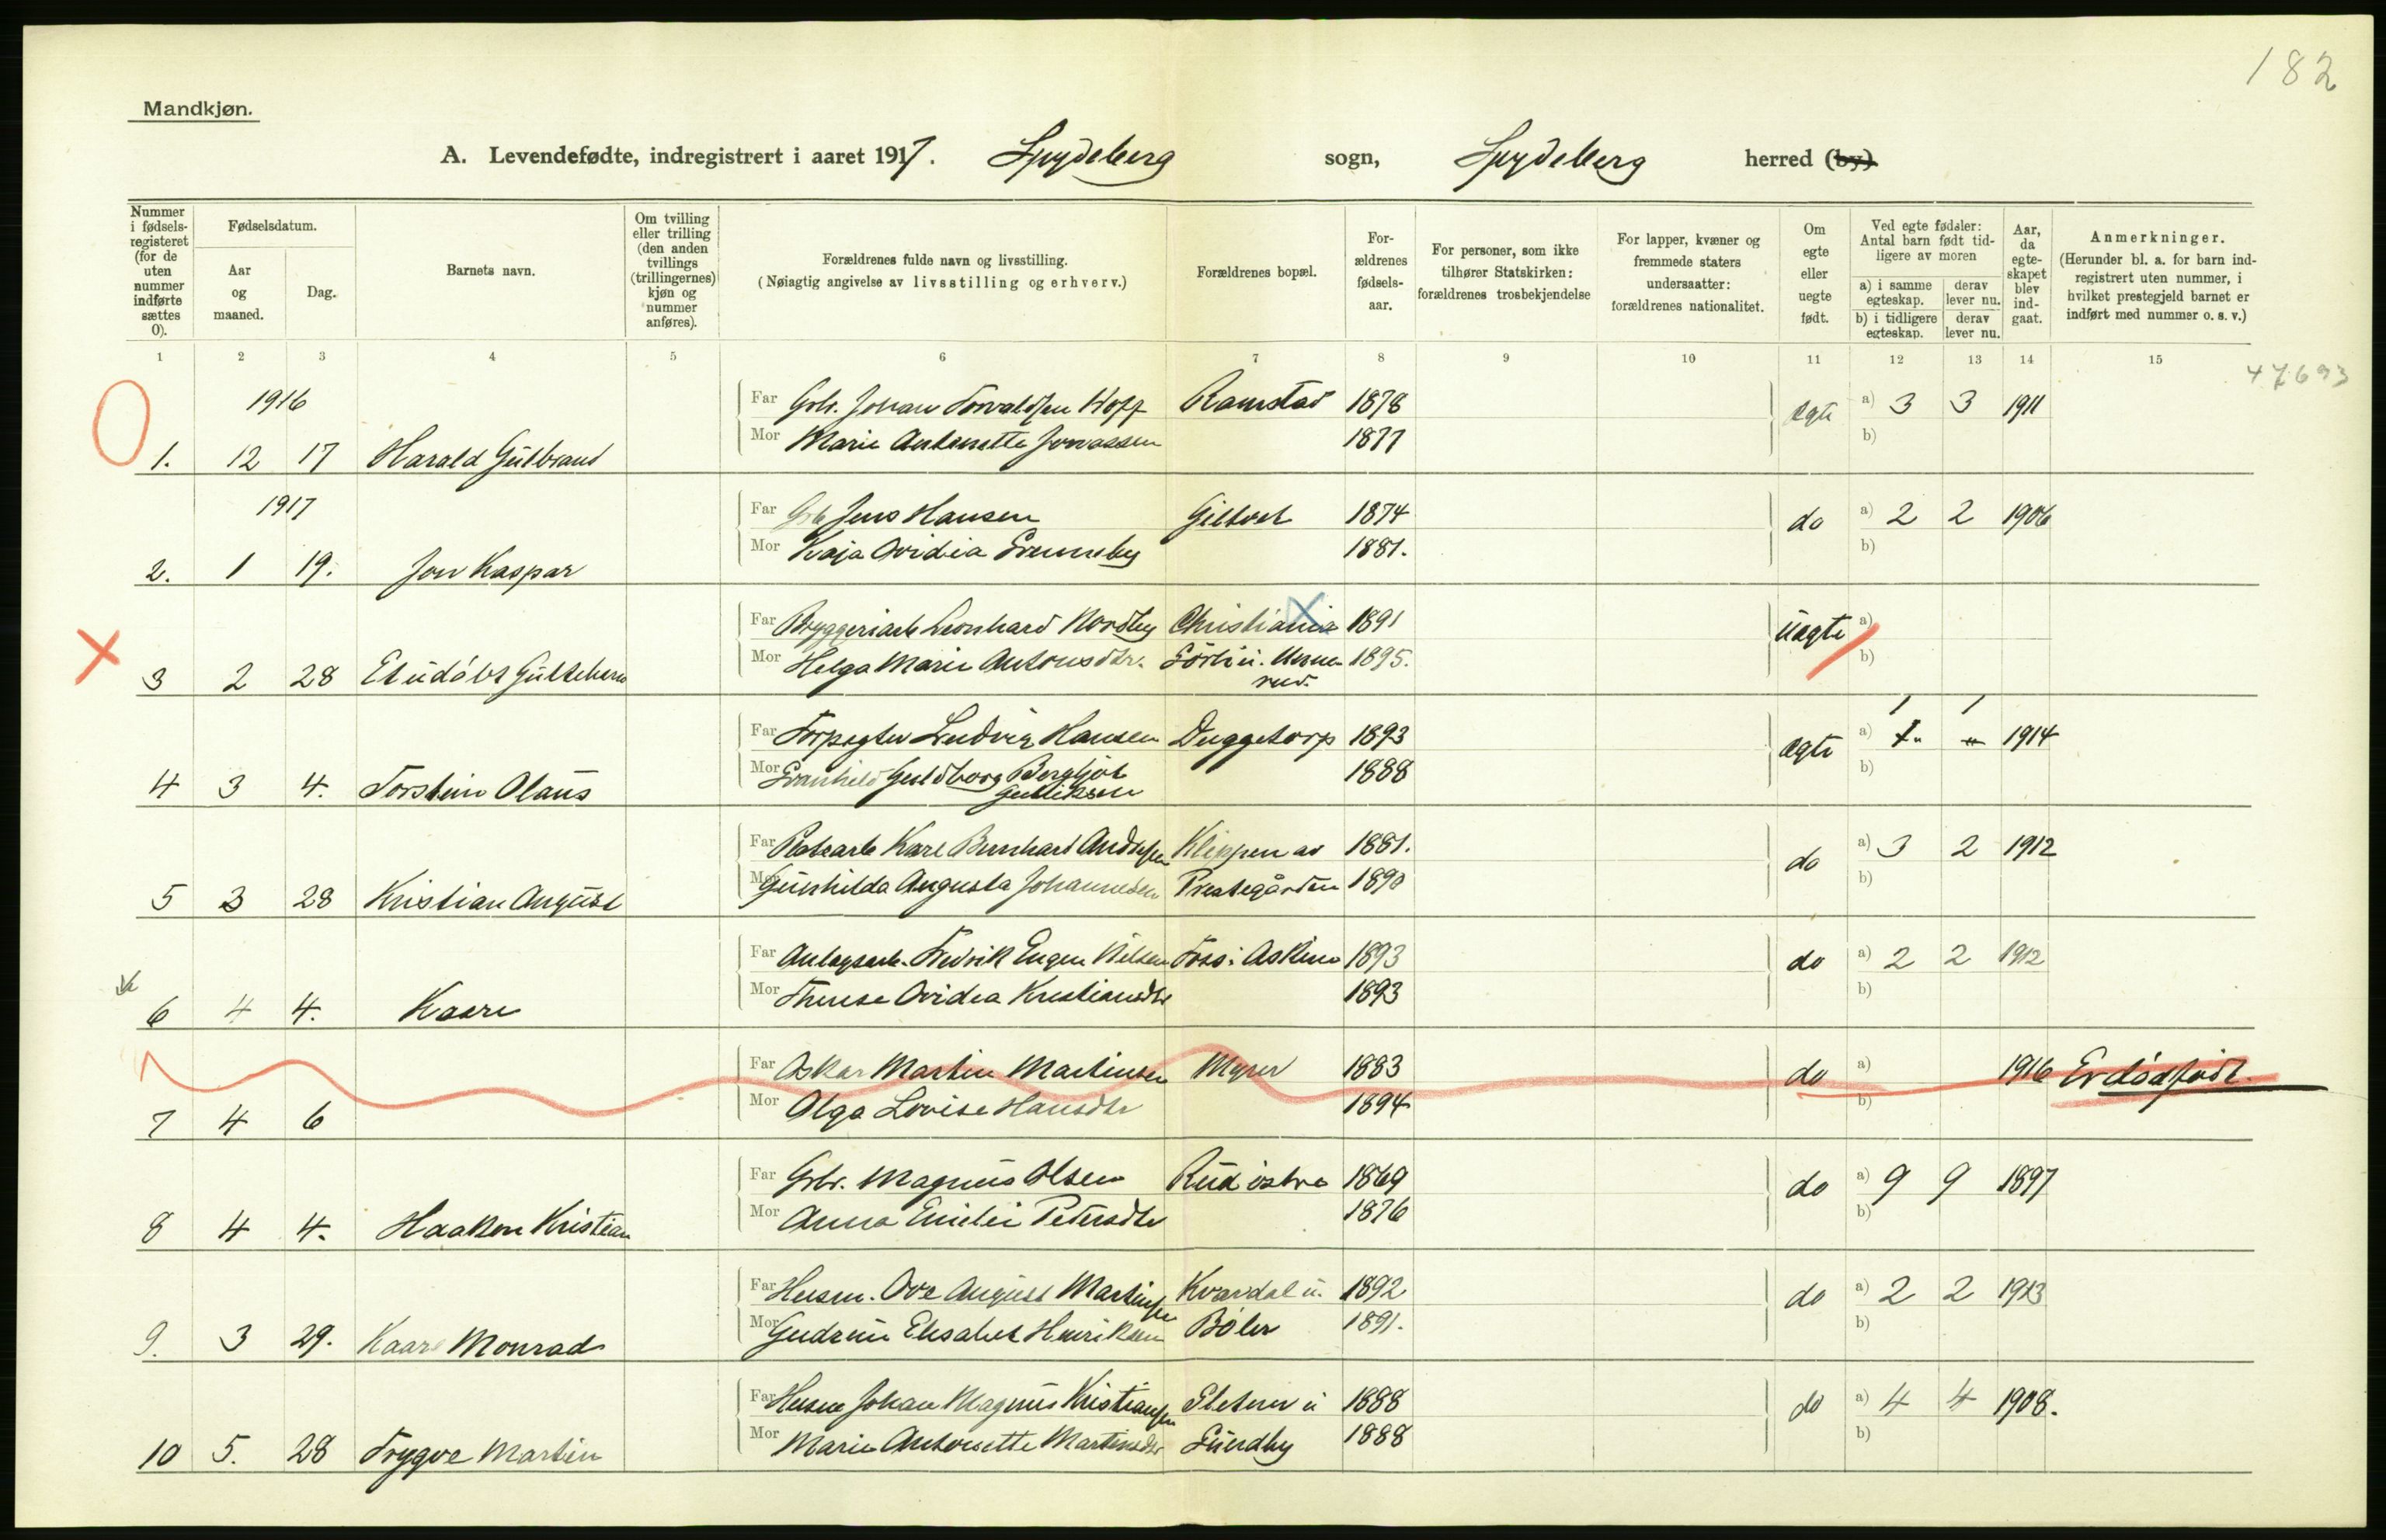 182
Mandkjøn.
A. Levendefødte, indregistrert i aaret 1917. Spydeberg sogn, Spydeberg herred (by)
Nummer i fødselsregisteret (for de uten nummer indførte sættes 0).
Fødselsdatum.
Aar og maaned.
Dag.
Barnets navn.
Om tvilling eller trilling (den anden tvillings (trillingernes) kjøn og nummer anføres).
Forældrenes fulde navn og livsstilling.
(Nøiagtig angivelse av livsstilling og erhverv.)
Forældrenes bopæl.
Forældrenes fødselsaar.
For personer, som ikke tilhører Statskirken: forældrenes trosbekjendelse
For lapper, kvæner og fremmede staters undersaatter: forældrenes nationalitet.
Om egte eller uegte født.
Ved egte fødsler: Antal barn født tidligere av moren
a) i samme egteskap.
derav lever nu.
b) i tidligere egteskap.
derav lever nu.
Aar, da egteskapet blev indgaat.
Anmerkninger.
(Herunder bl. a. for barn indregistrert uten nummer, i hvilket prestegjeld barnet er indført med nummer o. s. v.)
1 2 3 4 5 6 7 8 9 10 11 12 13 14 15
47693
1916
Far Grbr. Johan Torvaldsen Hoff Ramstad 1878 ægte a) 3 3 1911
Mor Marie Antonette Jonassen 1877 b)
1. 12 17 Harald Gulbrand
1917
Far Grb Jens Hansen 1874 do a) 2 2 1906
Mor Kaja Ovidia 1881. b)
2. 1 19. Jon Kaspar
Far Bryggeriarb Leonhard Nordby Christiania 1891 uægte a)
Mor Helga Marie Antonsdtr. 1895. b)
3 2 28 Et udøbt Guttebarn
1 1
Far Forpagter Ludvig Hansen Duggetorp 1893 ægte a) 1914
Mor Guldborg Bergljot Gulliksen 1888 b)
4 3 4. Torstein Olaus
Far Karl Bernhard Andersen Klippen av 1881. do a) 3 2 1912
Mor Gunhilda Augusta Johannesen Prestegården 1890 b)
5 3 28 Kristian August
Far Anlægsarb. Fredrik Eugen Nilsen Foss i Askim 1893 do a) 2 2 1912
Mor Therese Ovidea Kristiansdtr 1893 b)
6 4 4. Kaare
Far Oskar Martin Martinsen Myrer 1883 do a) 1916 Er dødfødt.
Mor Olga Lovise Hansdtr 1894 b)
7 4 6
Far Grbr. Magnus Olsen Rud østre 1869 do a) 9 9 1897
Mor Anna Emilie Petersdtr 1876 b)
8 4 4. Haakon Kristian
Far Husm. Ove August Martinsen Kvardal u. 1892 do a) 2 2 1913
Mor Gudrun Elisabet Henriksen Bøler 1891. b)
9. 3 29. Kaare Monrad
Far Husm Johan Magnus Kristiansen Sletner u 1888 do a) 4 4 1908.
Mor Marie Antonette Martinsdtr Lundby 1888 b)
10 5. 28 Trygve Martin